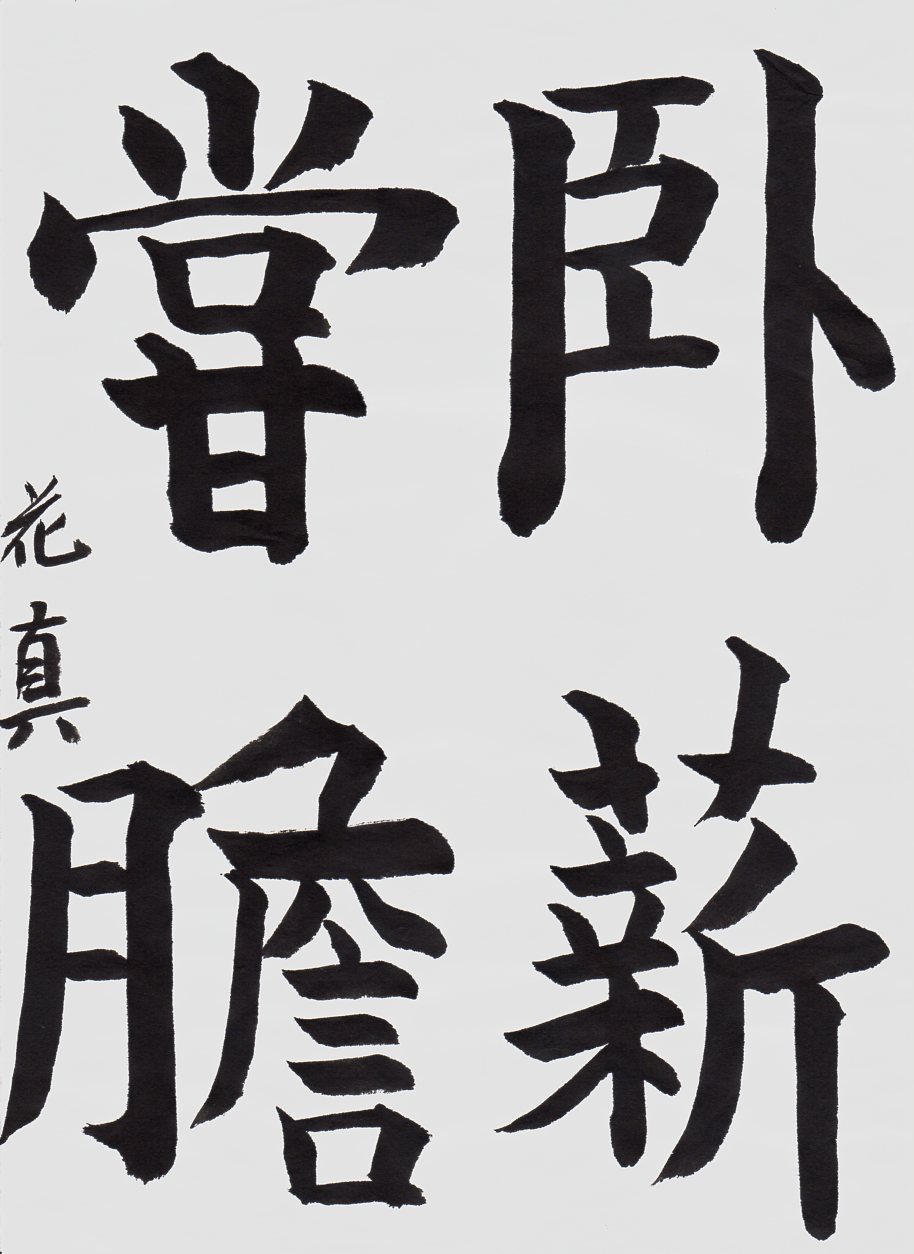 臥薪
嘗膽
花真